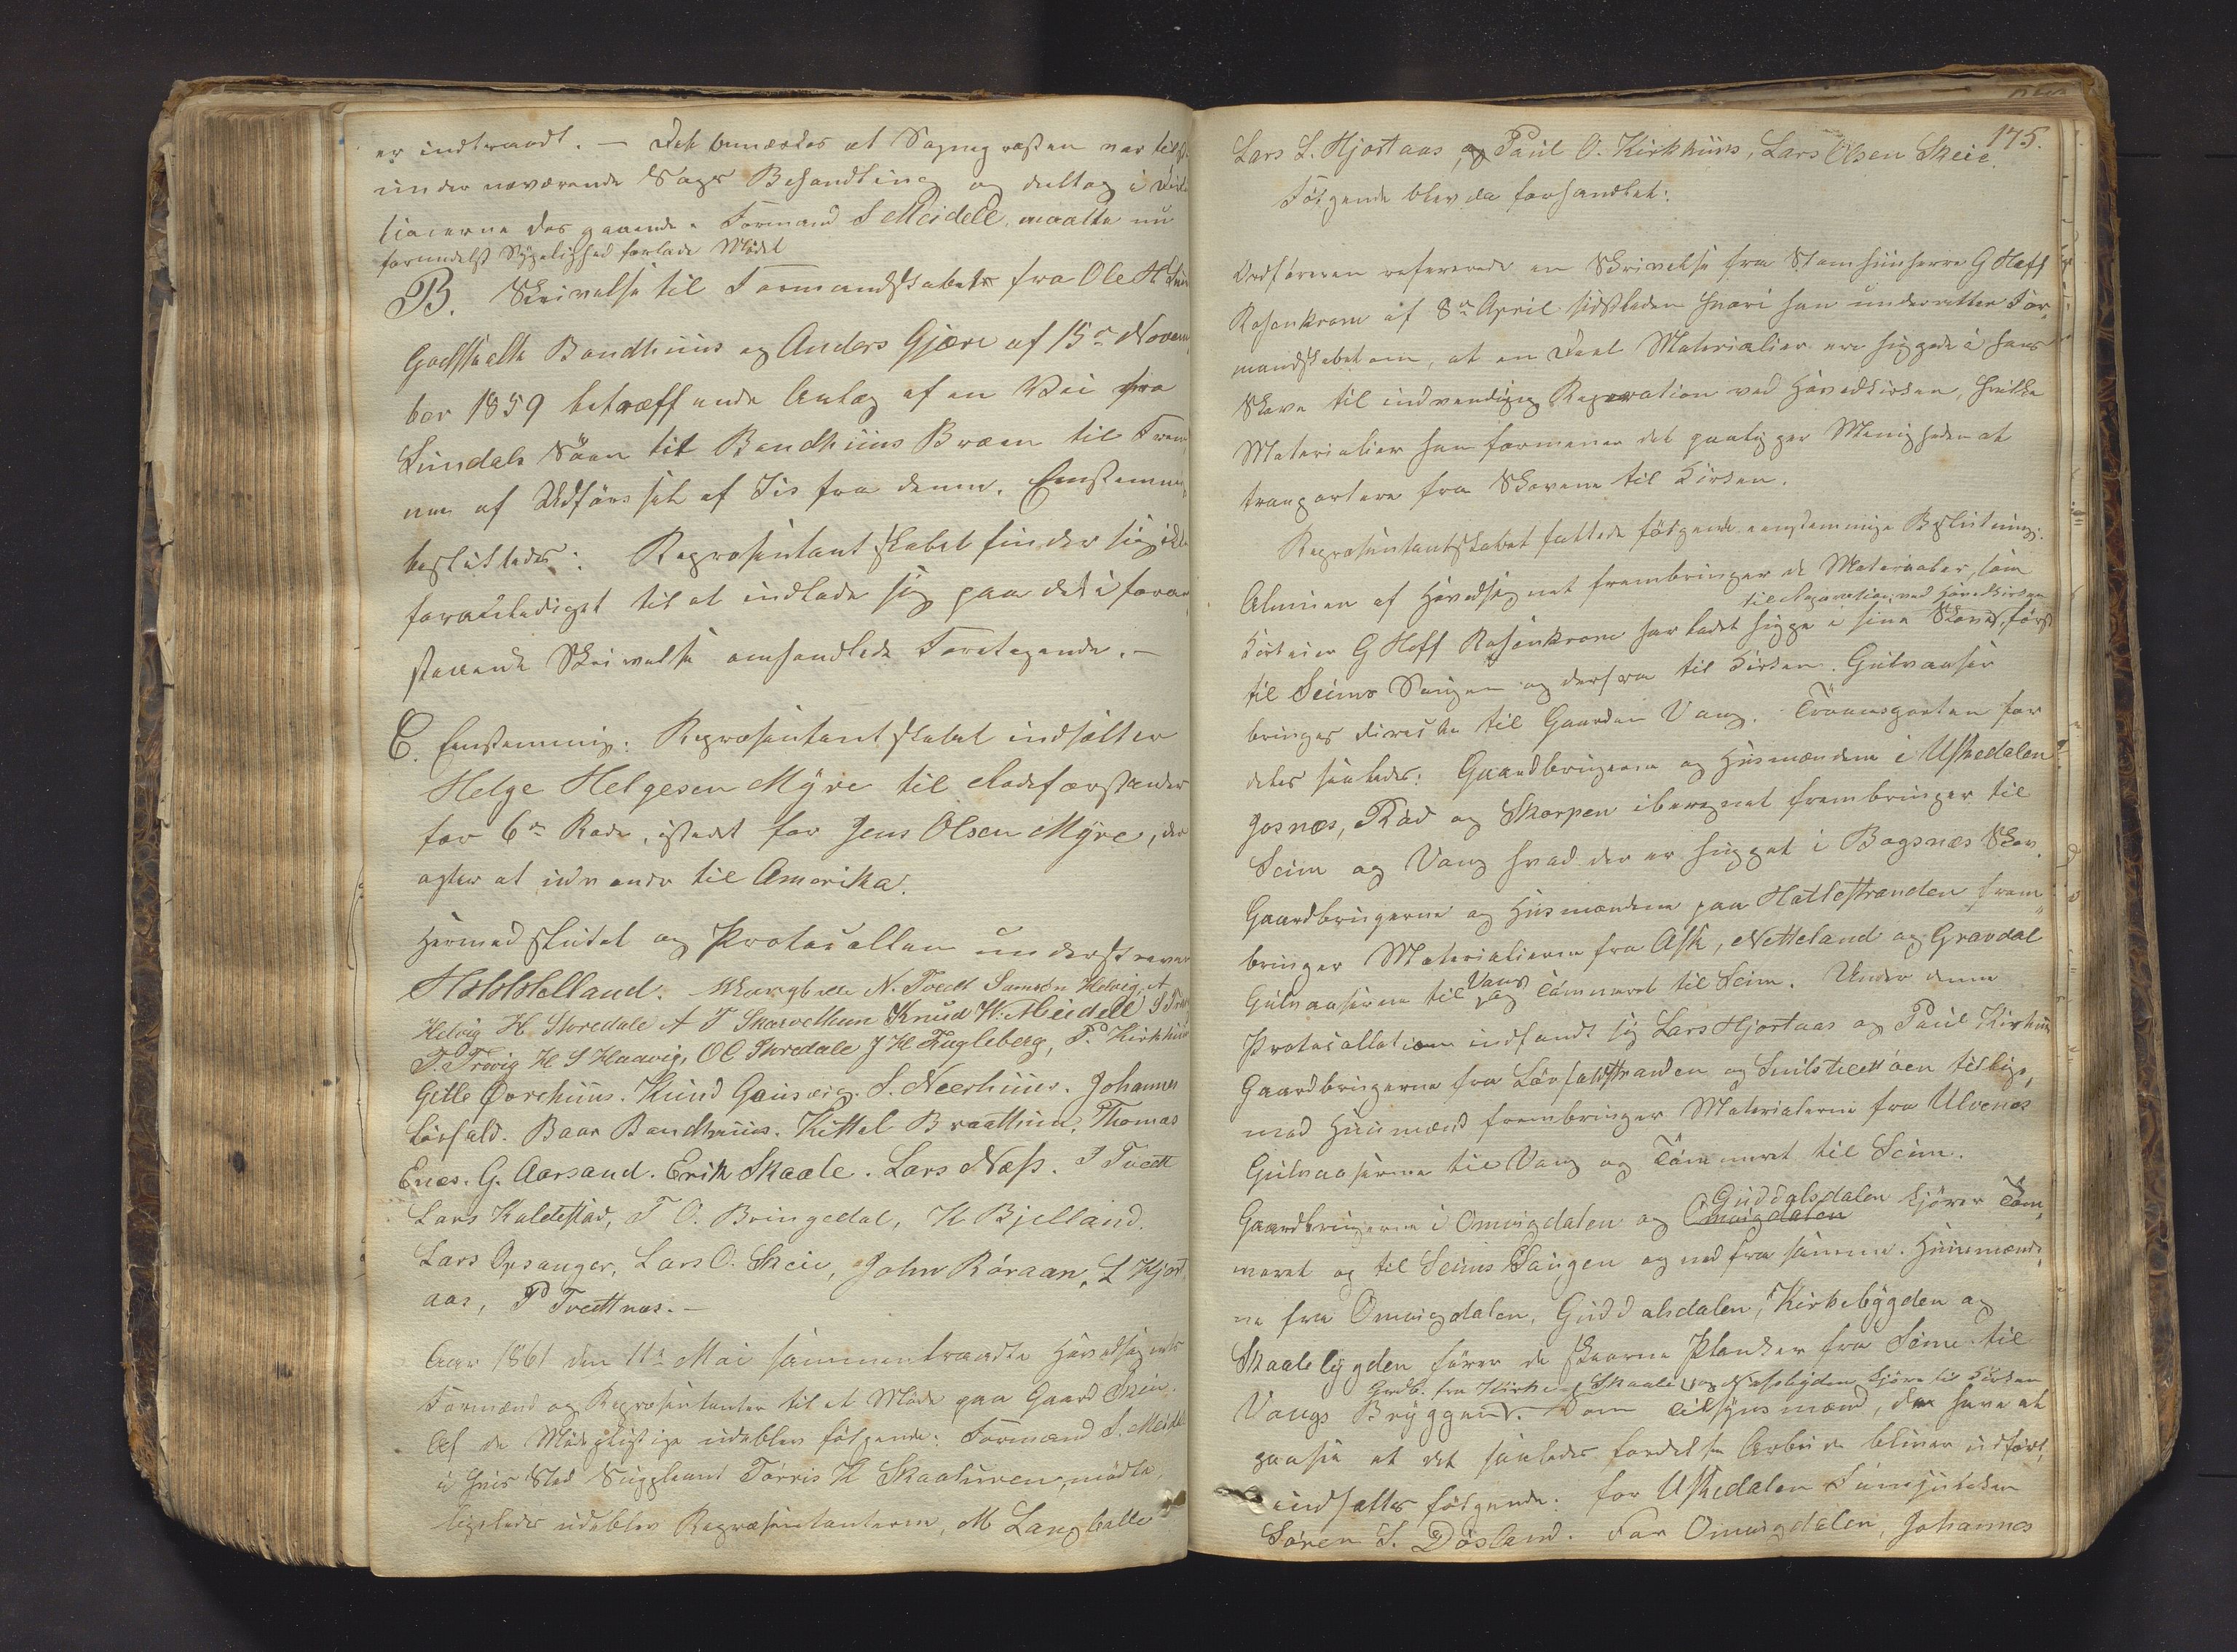 er indtraadt. – Det bemærkes at Sognepræsten var tilst.
under nærværende Sags Behandling og deeltog i
tionerne desangaaende. Formand S Meidell maatte nu
formedelst Sygelighed forlade Mødet
B. Skrivelse til Formandskabet fra Ole H
Gotskalk Bondhuus og Anders Gjære af 15de Novem
ber 1859 betræffende Anlæg af en Vei fra
Sundals Søen til Bondhuus Bræen til Frem
me af Udførsel af Iis fra denne. Eenstemmig
besluttedes: Repræsentantskabet finder sig ikke
foranlediget til at indlade sig paa det i foran
staaende Skrivelse omhandlede Foretagende. –
C. Eenstemmig: Repræsentantskabet indsætter
Helge Helgesen Myre til Rodeforstander
for 6te Rode, istedet for Jens Olsen Myre, der
agter at udvandre til Amerika.
Hermed sluttet og Protocollen underskreven
Helland. M Langballe N. Tvedt Samson Helvig, A
Helvig H. Skredale A T Skarvethun Knud W. Meidell
T. Trøvig H S Haavig, O O Skredale J H Fugleberg, P. Kirkhuus
Gitle Øvrehuus. Knud Gausvig. S. Neerhuus. Johannes
Løfald. Baar Bondhuus. Kittel Braathun, Thomas
Enes. G. Aarsand. Erik Skaale. Lars Næss. T Tvedt
Lars Kaldestad, T O. Bringedal, K Bjelland.
Lars Opsanger, Lars O. Skeie, John Røraan, L Hjort
aas, P Tvedtnæs. –
Aar 1861 den 11te Mai sammentraadte Hovedsognets
Formænd og Repræsentanter til et Møde paa Gaard Skeie.
Af de Mødepligtige udeblev følgende: Formand S. Meidell
i hvis Sted Suppleant Tørris H Skaaluren, mødte,
ligeledes udeblev Repræsentanterne, M Langballe
175.
Lars L. Hjortaas, og Paul O. Kirkhuus, Lars Olsen Skeie.
Følgende blev da forhandlet:
Ordføreren refererede en Skrivelse fra Stamhuusherre G Hoff
Rosenkrone af 8de April sidstleden hvori han underretter For
mandskabet om, at en Deel Materialier ere huggede i hans
Skove til indvendig Reparation ved Hovedkirken, hvilke
Materialier han formener det paaligger Menigheden at
transportere fra Skovene til Kirken.
Repræsentantskabet fattede følgende eenstemmige Beslutning:
Almuen af Hovedsognet frembringer de Materialer, som
til Reparation ved Hovedkirken
Kirkeeier G Hoff Rosenkrone har ladet hugge i sine Skove, først
til Seims Saugen og derfra til Kirken. Gulvaaser
bringes directe til Gaarden Vang. Transporten for
deles saaledes: Gaardbrugerne og Husmændene i Uskedalen
Josnæs, Rød og Skorpen iberegnet frembringer til
Seim og Vang hvad der er hugget i Bogsnæs Skov.
Gaardbrugerne og Husmændene paa Hattestranden frem
bringer Materialierne fra Ask, Netteland og Gravdal
Gulvaaserne til Vang og Tømmeret til Seim. Under denne
Protocollation indfandt sig Lars Hjortaas og Paul Kirkhuus
Gaardbrugerne fra Løfaldstranden og Snilstveitøen tillige
med Huusmænd frembringer Materialerne fra Ulvenæs
Gulvaaserne til Vang og Tømmeret til Seim.
Gaardbrugerne i Omvigdalen og Omvigdalen Guddalsdalen kjører Tøm
meret op til Seims Saugen og ned fra samme. Huusmænde
ne fra Omvigdalen, Guddalsdalen, Kirkebygden og
Skaalebygden fører de skaarne Planker fra Seim til
Grdb. fra Kirke og Skaale og Næsbygden kjøre til Kirken
Vangs Bryggen. Som Tilsynsmænd, der have at
paasee at det saaledes fordelte Arbeide bliver udført,
indsættes følgende: for Uskedalen
Søren S. Døsland. For Omvigdalen, Johannes